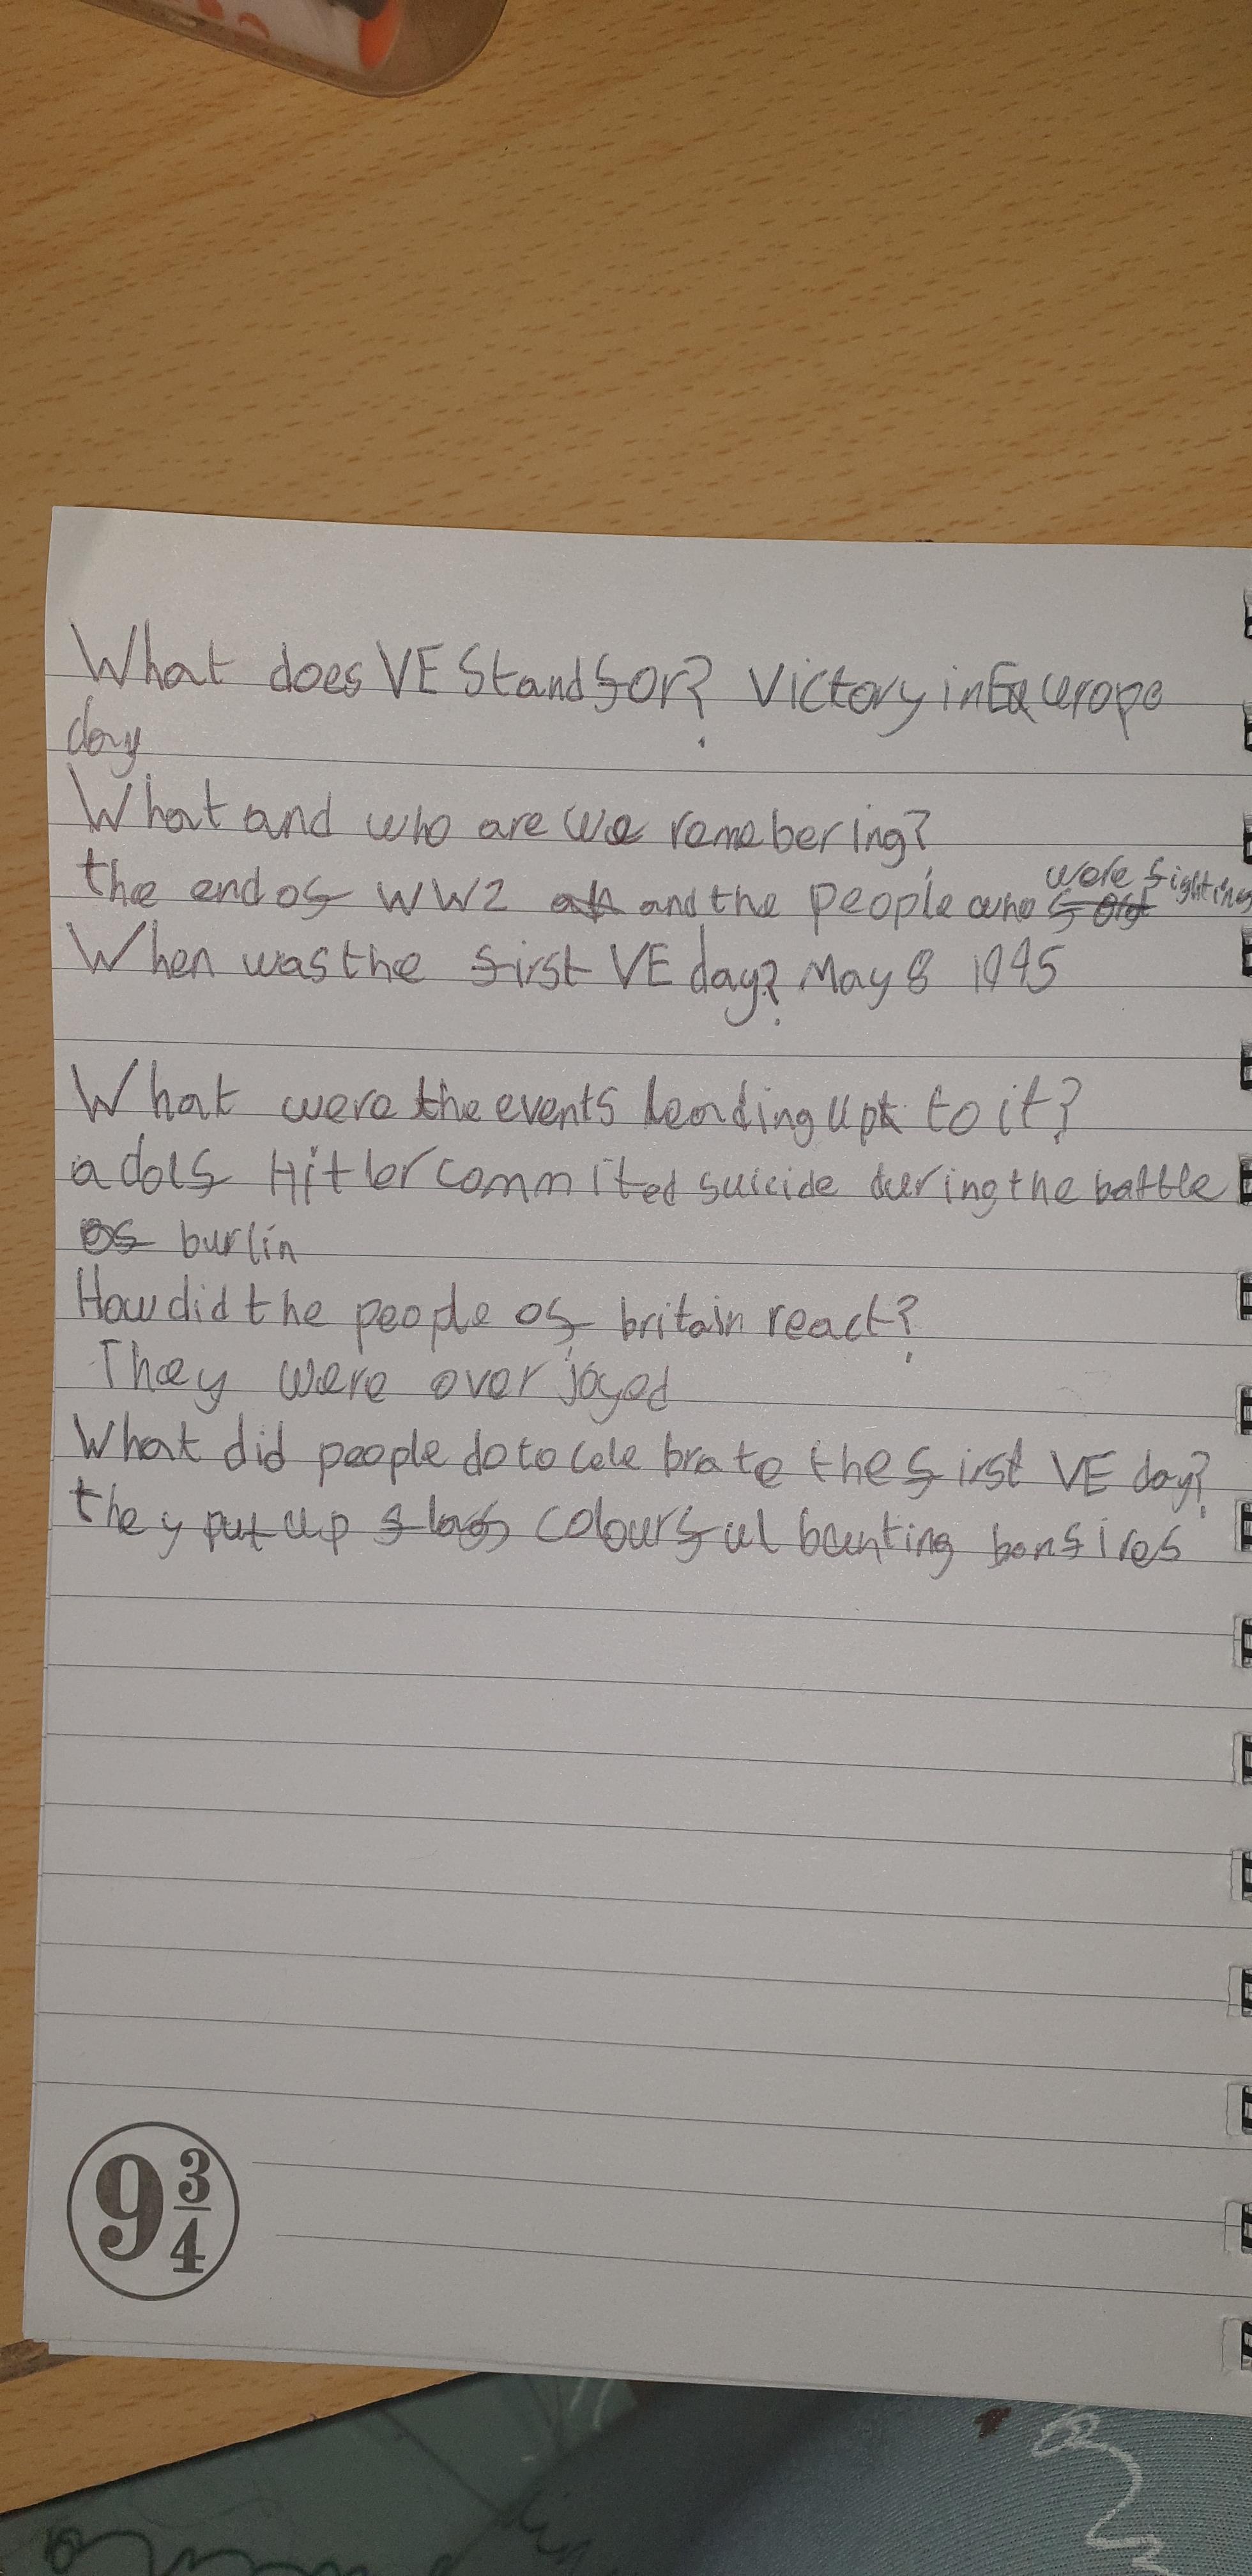 What does VE Stand for? Victory in Europe
day
What and who are we remebering?
the end of WW2 and the people who were fighting
When was the first VE day? May 8 1945
What were the events leading up to it?
adolf Hitler commited suicide during the battle
of burlin
How did the people of britain react?
They were over joyed
What did people do to celebrate the first VE day?
they put up flags colourful bunting bonfires
9 3/4